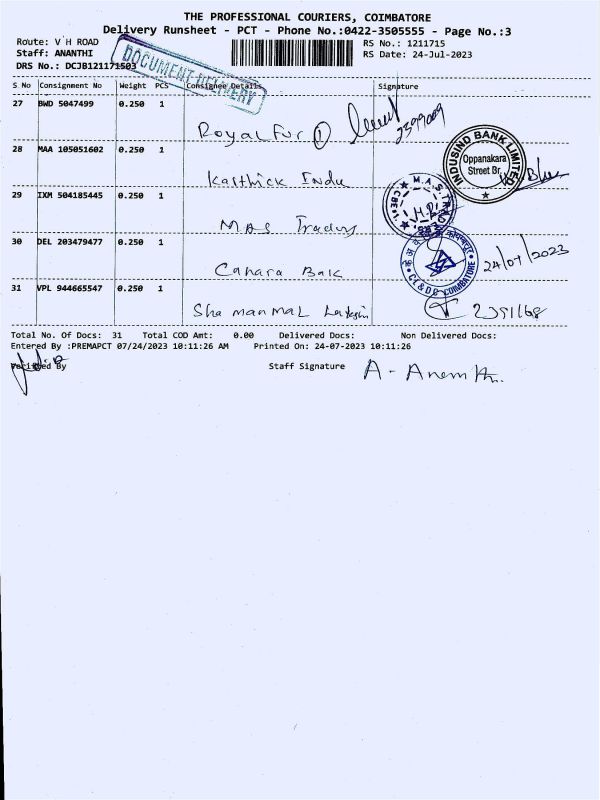 THE PROFESSIONAL COURIERS, COIMBATORE
Delivery Runsheet - PCT - Phone No.:0422-3505555 - Page No.:3
Route: V H ROAD
RS No.: 1211715
Staff: ANANTHI
RS Date: 24-Jul-2023
DRS No.: DCJB121171503
DOCUMENT DELIVERY
S No Consignment No Weight PCS Consignee Details Signature
27 BWD 5047499 0.250 1
Royal Fur 1
2399009
28 MAA 105051602 0.250 1
INDUSIND BANK LIMITED
Oppanakara
Street Br.
Karthick Indu
29 IXM 504185445 0.250 1
M.A.S.
Mas Traders
30 DEL 203479477 0.250 1
CL & DB COIMBATORE
24/07/2023
Canara Bak
31 VPL 944665547 0.250 1
Sha manmal
2391168
Total No. Of Docs: 31 Total COD Amt: 0.00 Delivered Docs: Non Delivered Docs:
Entered By :PREMAPCT 07/24/2023 10:11:26 AM Printed On: 24-07-2023 10:11:26
Verified By Staff Signature